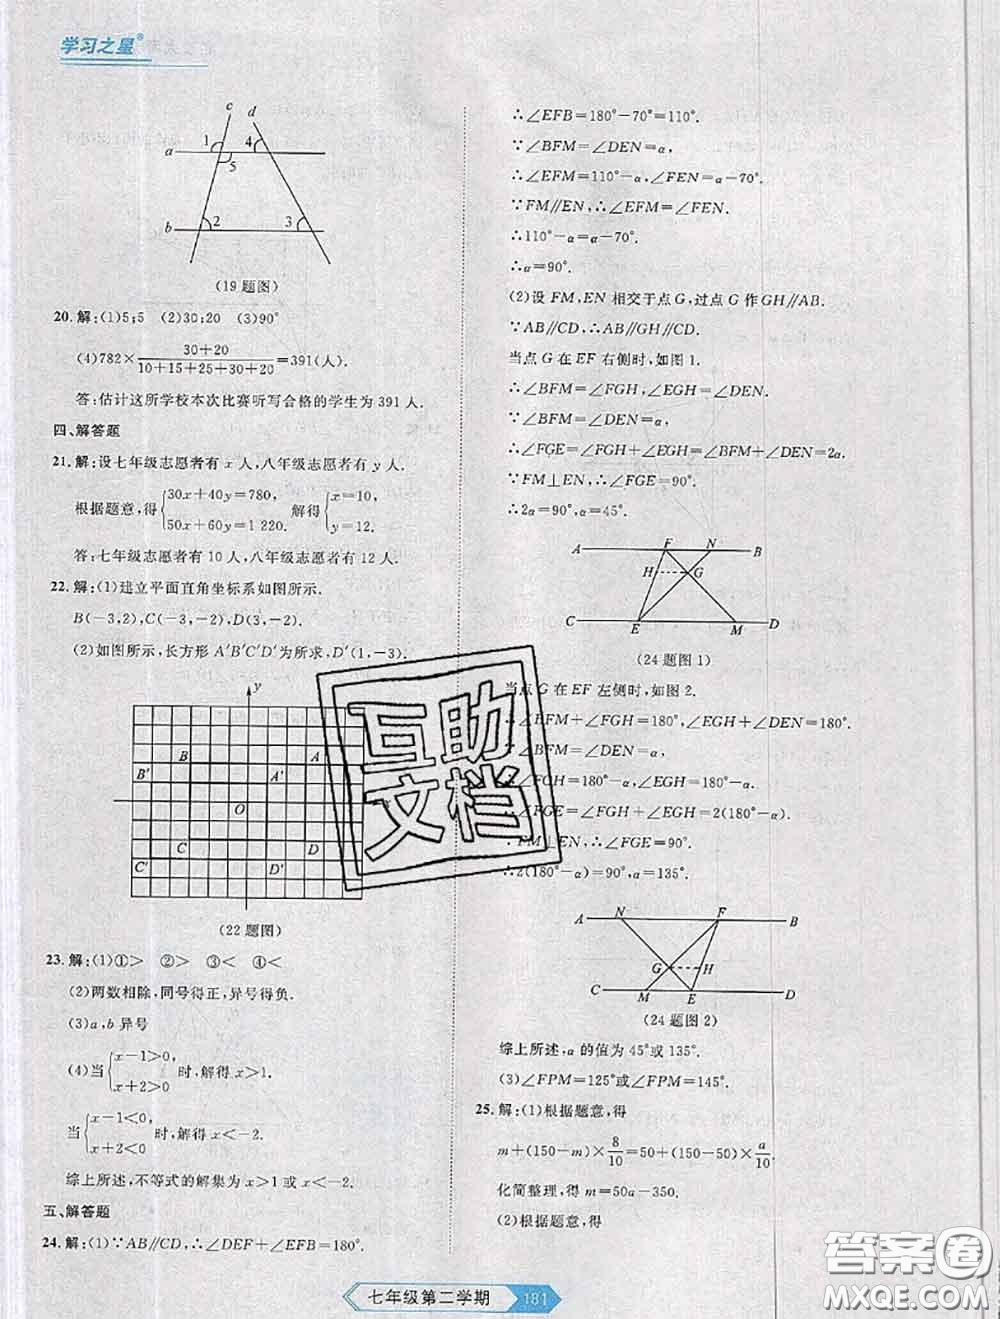 学习之星®
c
d
a
1
4
5
b
2
3
(19题图)
20.解:(1)5;5 (2)30;20 (3)90°
(4)782×(30+20)/(10+15+25+30+20)=391(人).
答:估计这所学校本次比赛听写合格的学生为391人.
四、解答题
21.解:设七年级志愿者有x人,八年级志愿者有y人.
根据题意,得{30x+40y=780, 50x+60y=1 220. 解得{x=10, y=12.
答:七年级志愿者有10人,八年级志愿者有12人.
22.解:(1)建立平面直角坐标系如图所示.
B(-3,2),C(-3,-2),D(3,-2).
(2)如图所示,长方形A′B′C′D′为所求,D′(1,-3).
y
B
A
B′
A′
O
C
D
C′
D′
(22题图)
23.解:(1)①> ②> ③< ④<
(2)两数相除,同号得正,异号得负.
(3)a,b异号
(4)当{x-1>0, x+2>0 时,解得x>1.
当{x-1<0, x+2<0 时,解得x<-2.
综上所述,不等式的解集为x>1或x<-2.
五、解答题
24.解:(1)∵AB∥CD,∴∠DEF+∠EFB=180°.
∴∠EFB=180°-70°=110°.
∵∠BFM=∠DEN=α,
∴∠EFM=110°-α,∠FEN=α-70°.
∵FM∥EN,∴∠EFM=∠FEN.
∴110°-α=α-70°.
∴α=90°.
(2)设FM,EN相交于点G,过点G作GH∥AB.
∵AB∥CD,∴AB∥GH∥CD.
当点G在EF右侧时,如图1.
∴∠BFM=∠FGH,∠EGH=∠DEN.
∵∠BFM=∠DEN=α,
∴∠FGE=∠FGH+∠EGH=∠BFM+∠DEN=2α.
∵FM⊥EN,∴∠FGE=90°.
∴2α=90°,α=45°.
A
F
N
B
H
G
C
E
M
D
(24题图1)
当点G在EF左侧时,如图2.
∴∠BFM+∠FGH=180°,∠EGH+∠DEN=180°.
∵∠BFM=∠DEN=α,
∴∠FGH=180°-α,∠EGH=180°-α.
∴∠FGE=∠FGH+∠EGH=2(180°-α).
∵FM⊥EN,∴∠FGE=90°.
∴2(180°-α)=90°,α=135°.
A
N
F
B
G
H
C
M
E
D
(24题图2)
综上所述,α的值为45°或135°.
(3)∠FPM=125°或∠FPM=145°.
25.解:(1)根据题意,得
m+(150-m)×8/10=50+(150-50)×a/10.
化简整理,得m=50a-350.
(2)根据题意,得
七年级第二学期 181
互助
文档
答案卷
MXQE.COM